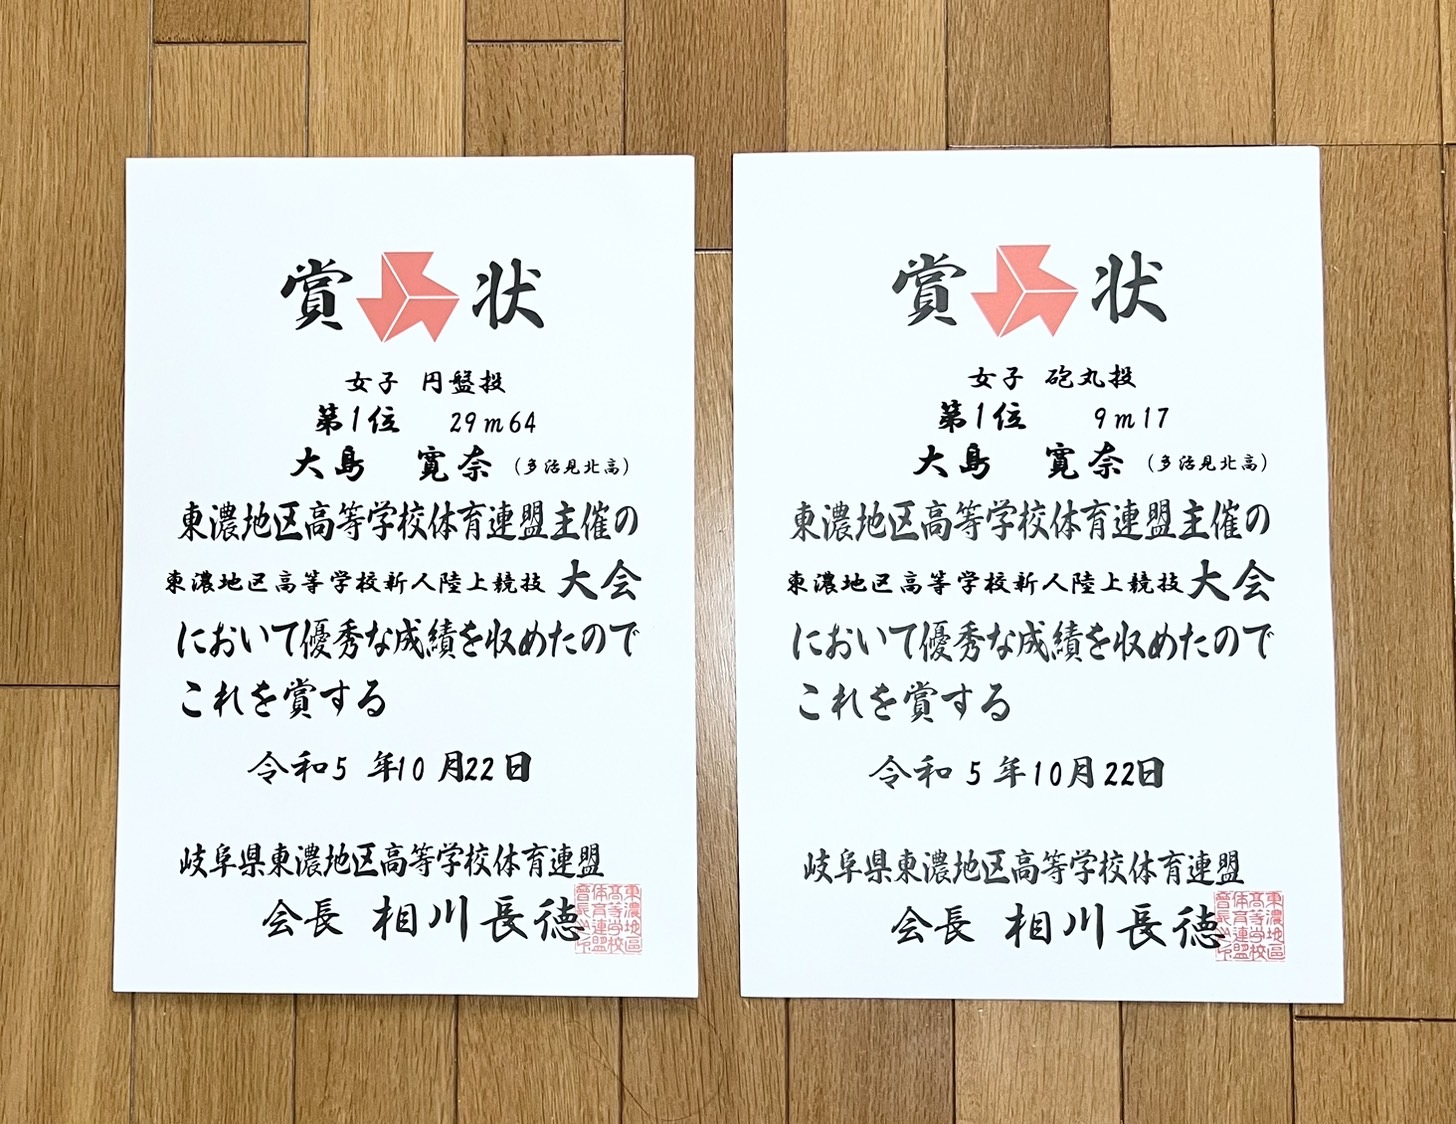 賞状
女子 円盤投
第1位 29m64
大島 寛奈 (多治見北高)
東濃地区高等学校体育連盟主催の
東濃地区高等学校新人陸上競技 大会
において優秀な成績を収めたので
これを賞する
令和5年10月22日
岐阜県東濃地区高等学校体育連盟
会長 相川長徳
東濃地區
高等学校
体育連盟
賞状
女子 砲丸投
第1位 9m17
大島 寛奈 (多治見北高)
東濃地区高等学校体育連盟主催の
東濃地区高等学校新人陸上競技大会
において優秀な成績を収めたので
これを賞する
令和5年10月22日
岐阜県東濃地区高等学校体育連盟
会長 相川長徳
東濃地區
高等学校
体育連盟